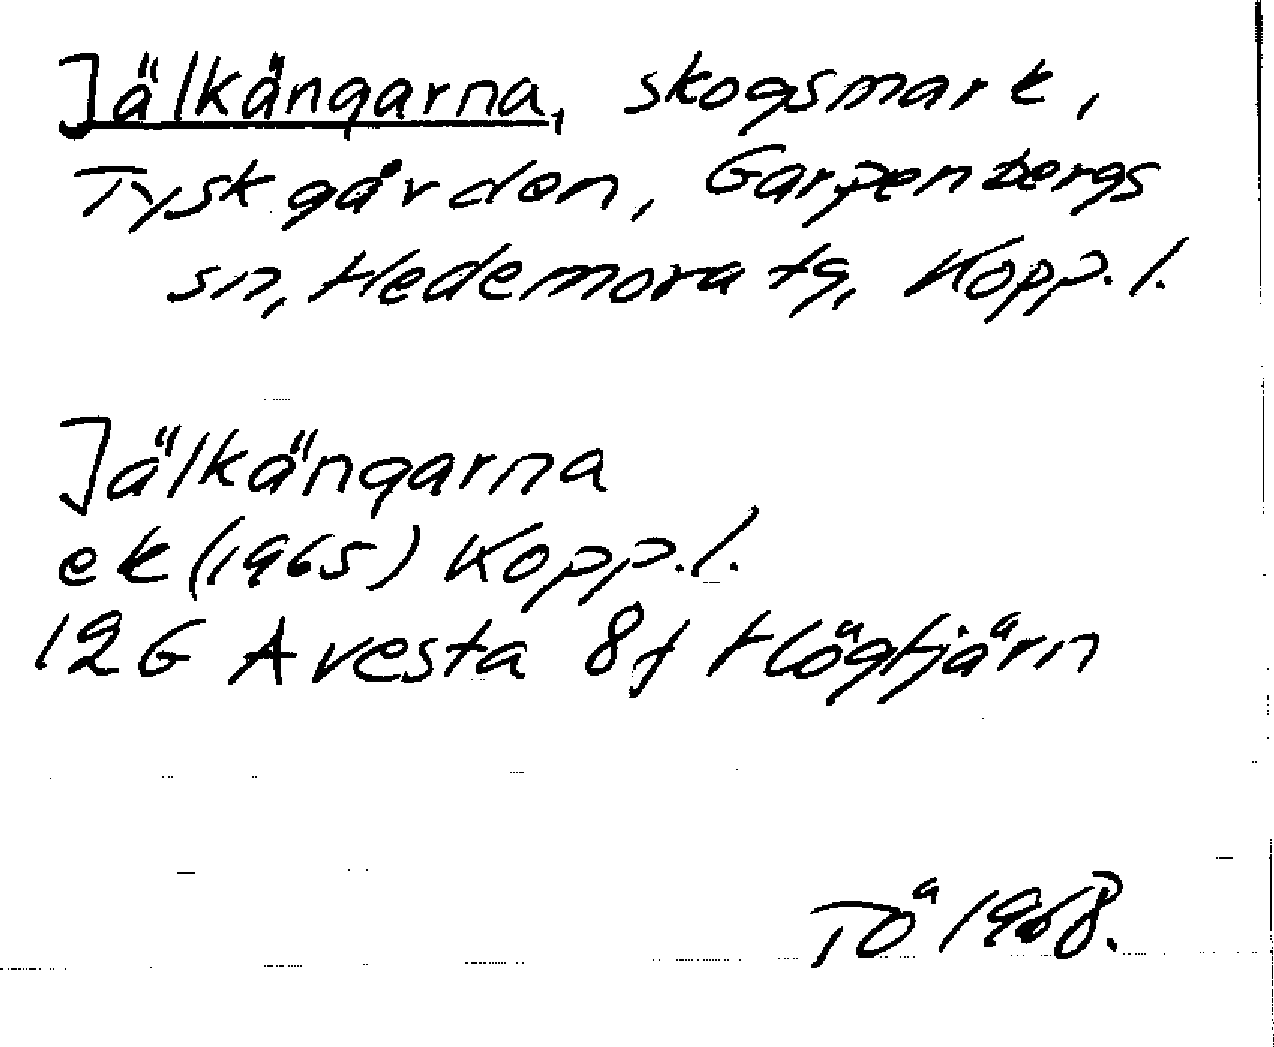 Jälkängarna, skogsmark,
Tyskgården, Garpenbergs
sn, Hedemora tg, Kopp. l.
Jälkängarna
ek (1965) Kopp. l.
12G Avesta 8f Högtjärn
TÖ 1968.